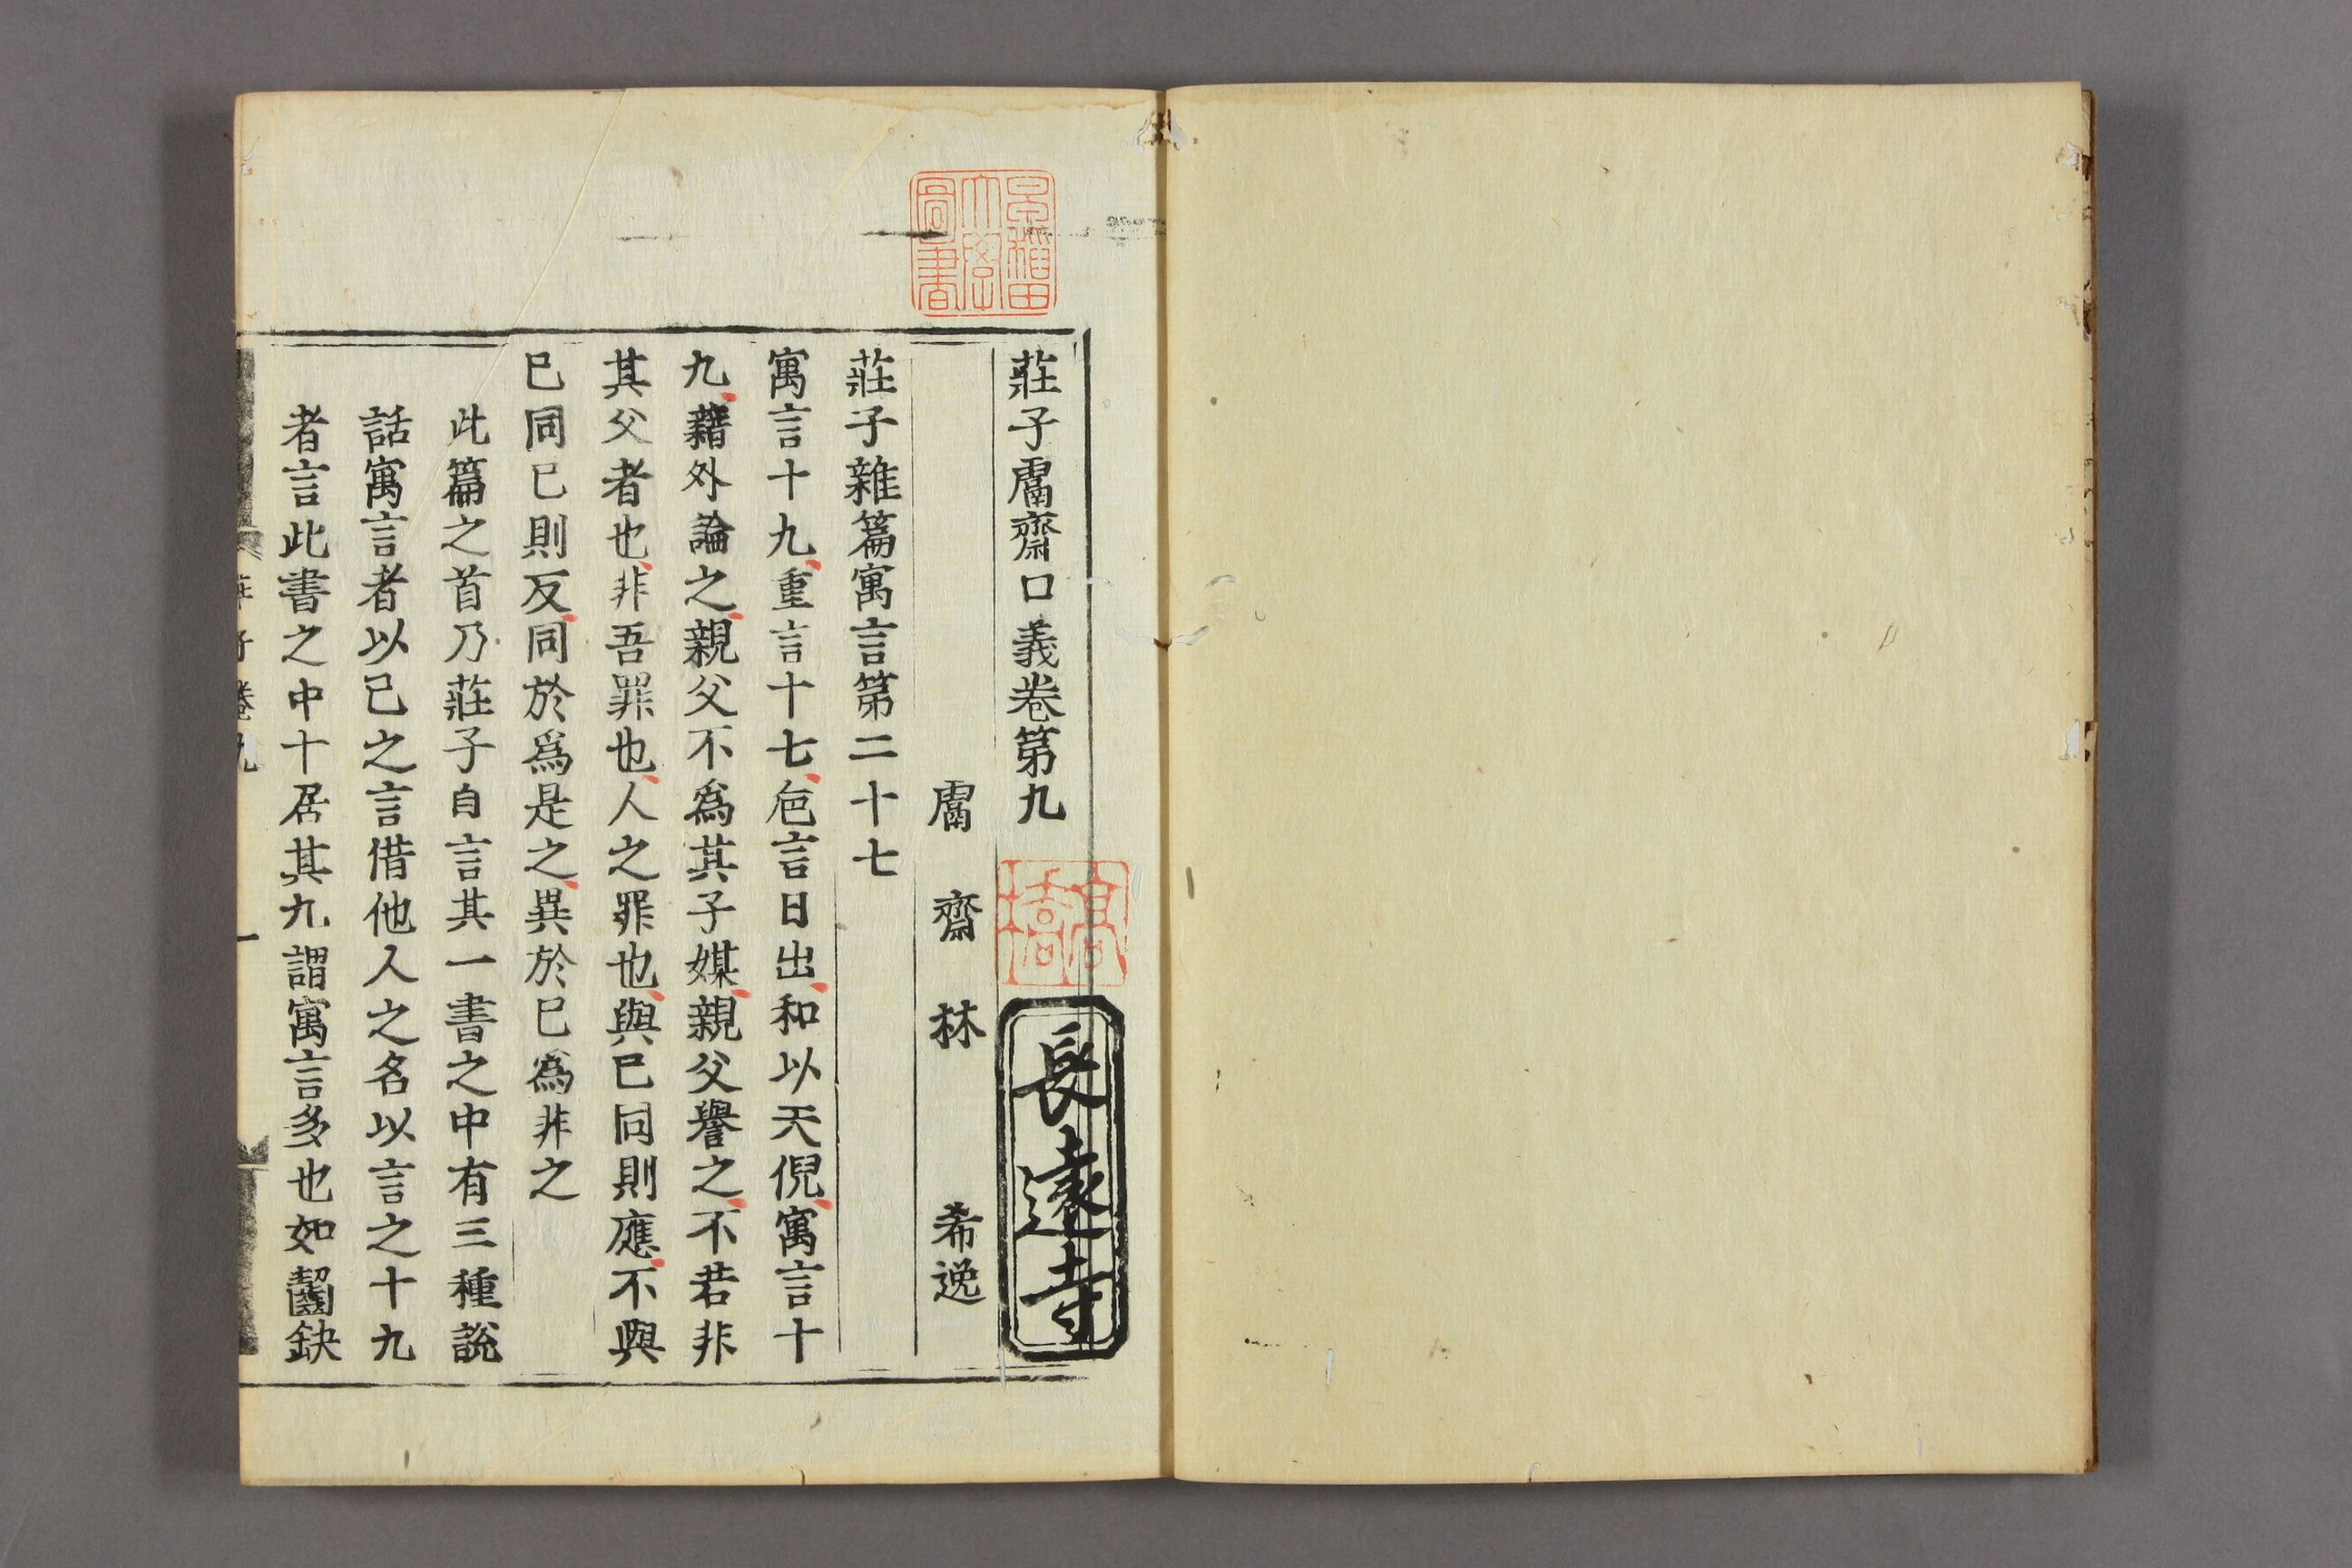 莊子鬳齋口義卷第九
鬳齋林希逸
莊子雜篇寓言第二十七
寓言十九重言十七巵言日出和以天倪寓言十
九藉外論之親父不爲其子媒親父譽之不若非
其父者也非吾罪也人之罪也與巳同則應不與
巳同巳則反同於爲是之異於巳爲非之
此篇之首乃莊子自言其一書之中有三種說
話寓言者以己之言借他人之名以言之十九
者言此書之中十居其九謂寓言多也如齧缺
莊子卷九
一
早稲田大學圖書
高橋
長遠寺